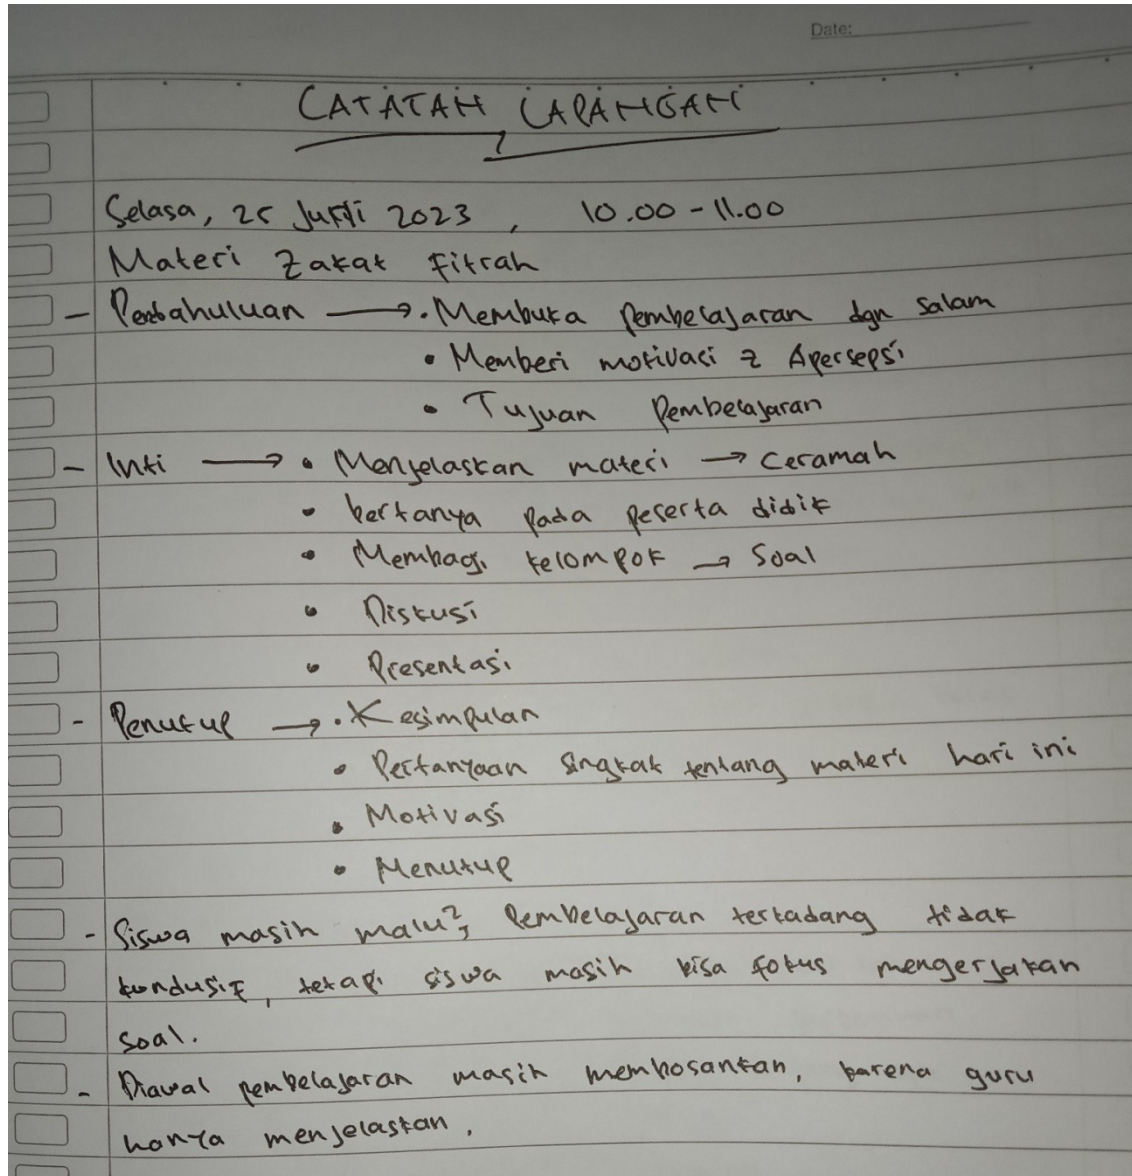 Date:
CATATAN LAPANGAN
Selasa, 25 Juni 2023, 10.00 - 11.00
Materi Zakat Fitrah
- Pendahuluan → • Membuka pembelajaran dgn salam
• Memberi motivasi & Apersepsi
• Tujuan Pembelajaran
- Inti → • Menjelaskan materi → ceramah
• bertanya pada peserta didik
• Membagi kelompok → Soal
• Diskusi
• Presentasi
- Penutup → • Kesimpulan
• Pertanyaan singkat tentang materi hari ini
• Motivasi
• Menutup
- Siswa masih malu², Pembelajaran terkadang tidak
kondusif, tetapi siswa masih bisa fokus mengerjakan
soal.
- Diawal pembelajaran masih membosankan, karena guru
hanya menjelaskan.